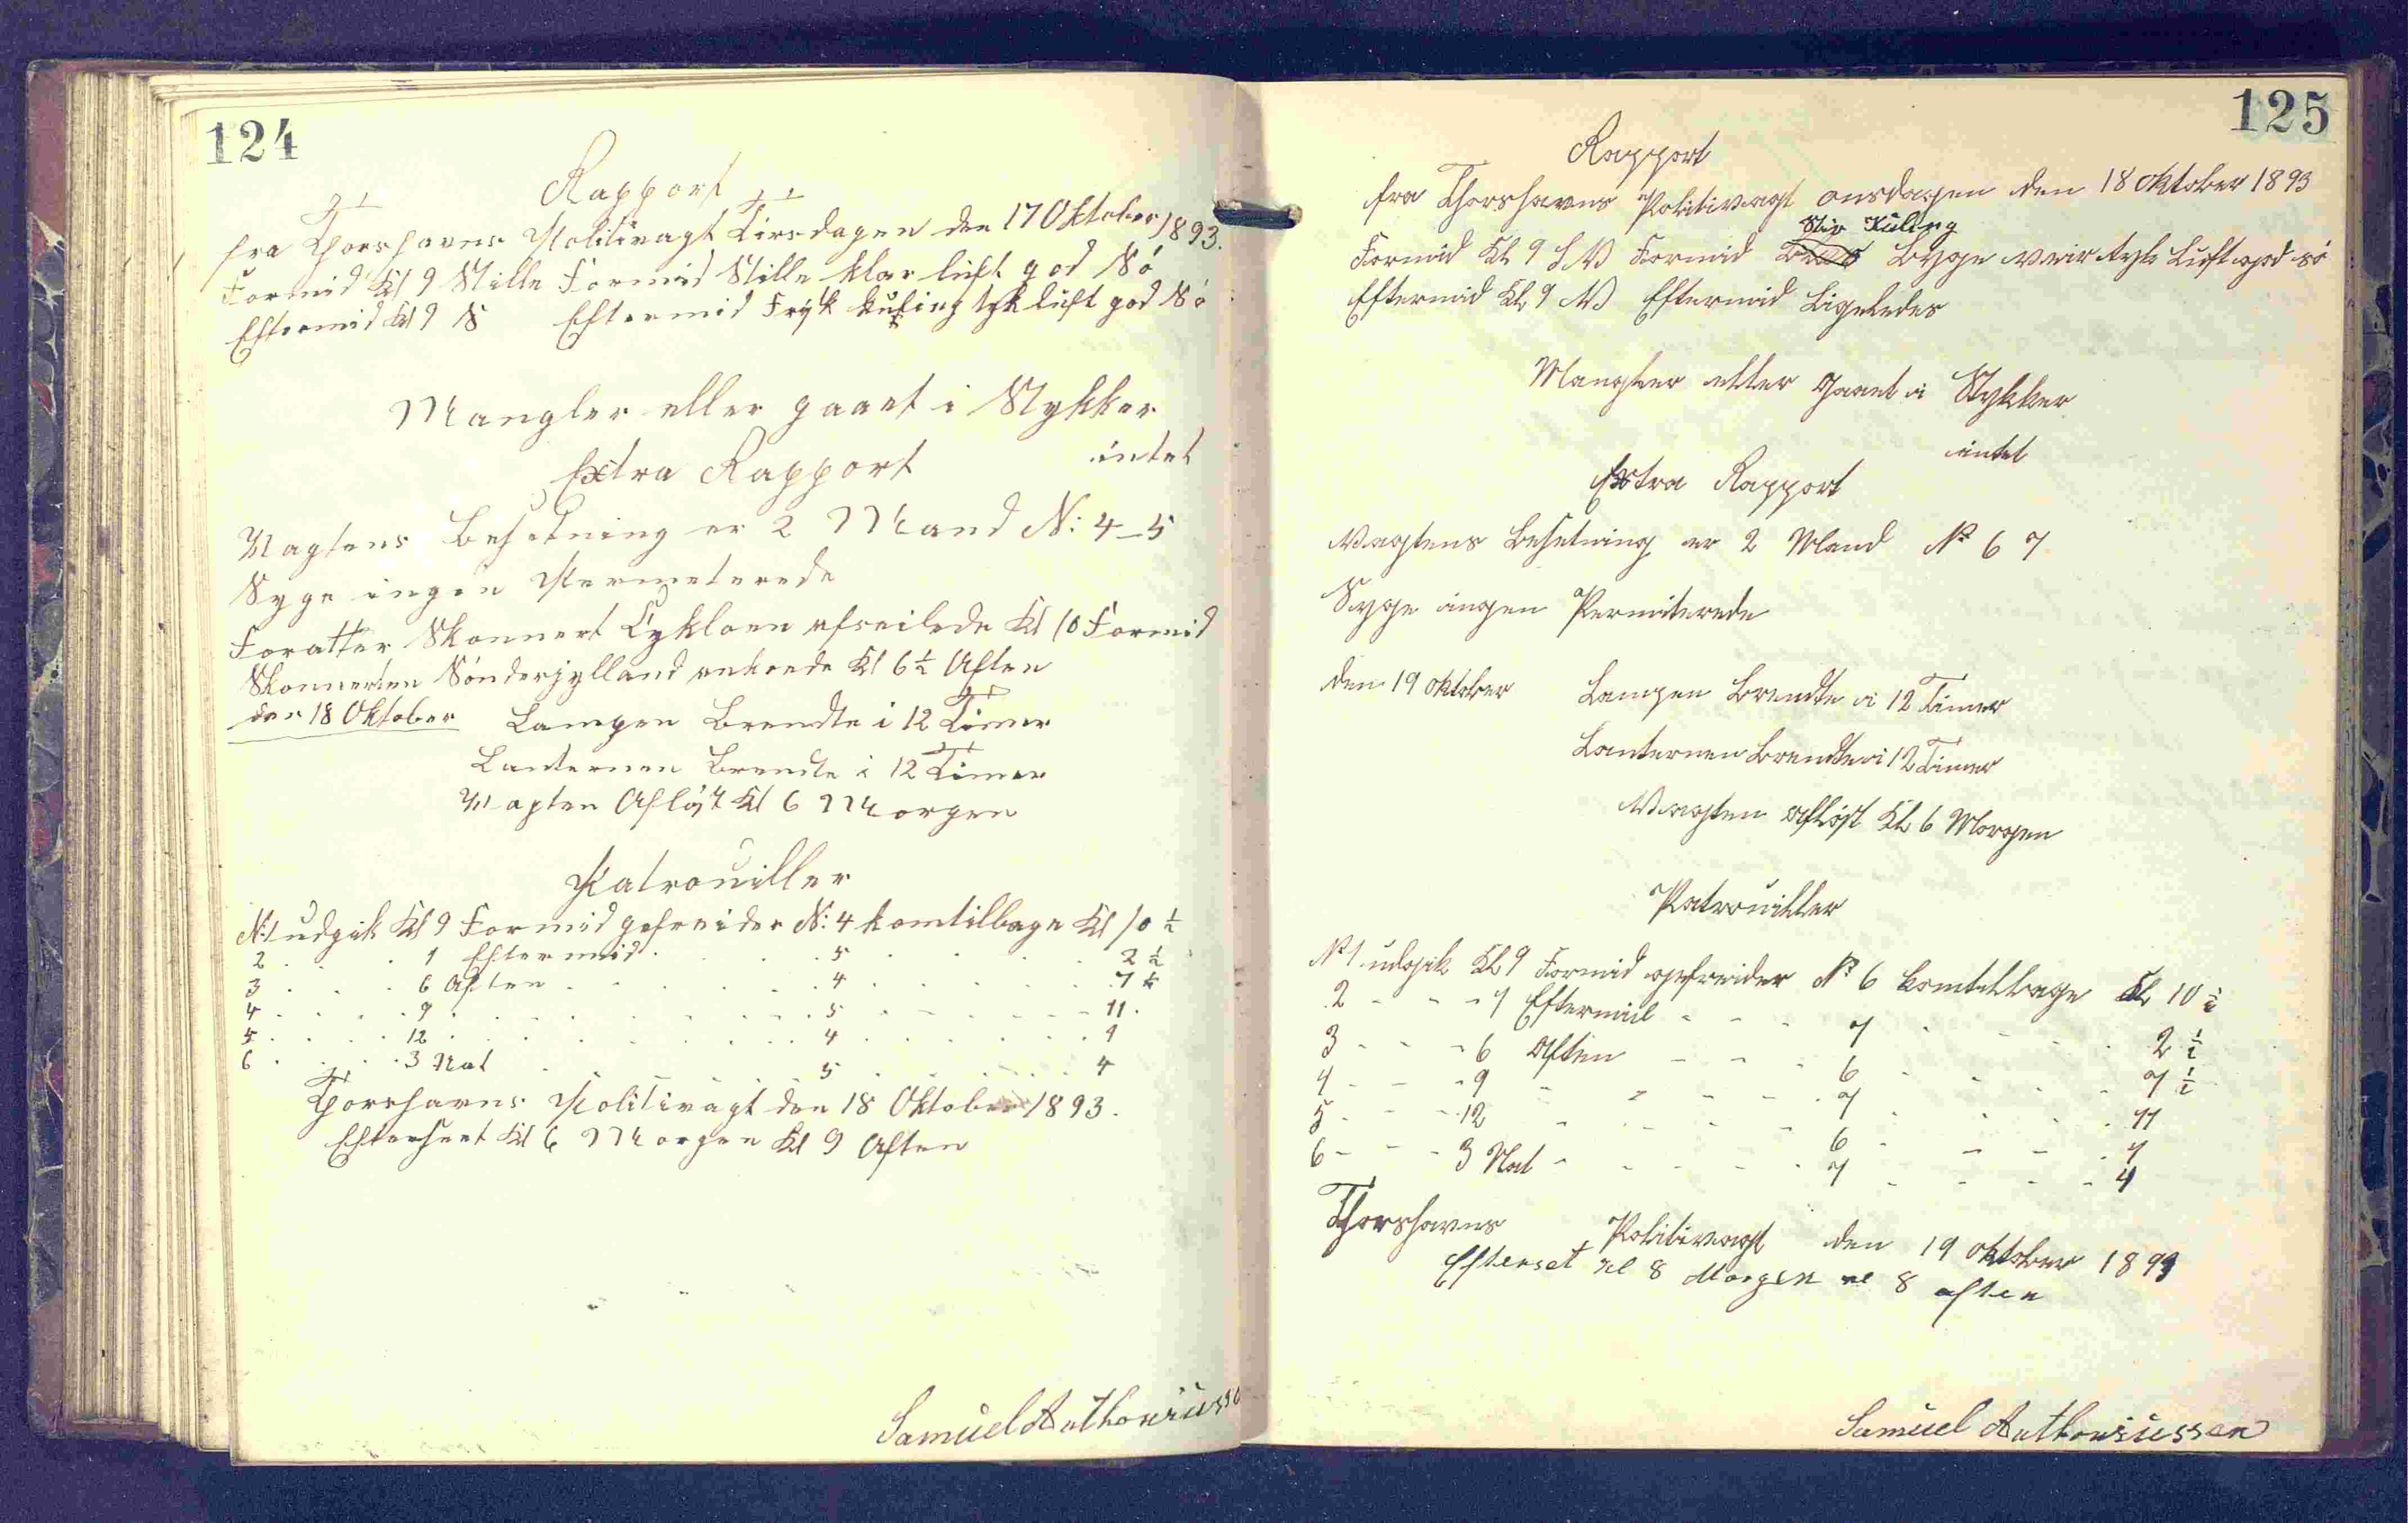 124
Rapport
fra Thorshavns Politivagt Tirsdagen den 17 Oktober 1893.
Formid Kl 9 Stille Formid Stille klar luft god Sö
Eftermid Kl 9 S Eftermid Frisk kuling tyk luft god Sö
Mangler eller gaaet i Stykker
intet
Extra Rapport
Vagtens Besetning er 2 Mand N: 4–5
Syge ingen Permeterede
Skonnert Cykloen afseilede Kl 10 Formid
Skonnerten Sönderjylland ankrede Kl 6½ Aften
den 18 Oktober Lampen Brendte i 12 Timer
Lanternen Brendte i 12 Timer
Vagten Aflöst Kl 6 Morgen
Patrouiller
N:1 udgik Kl 9 Formid gefreider N: 4 komtilbage Kl 10½
2 . . . 1 Eftermid . . . . 5 . . . . 2½
3 . . . 6 Aften . . . . 4 . . . . 7½
4 . . . 9 . . . . 5 . . . . 11
5 . . . 12 . . . . 4 . . . . 1
6 . . . 3 Nat . . . . 5 . . . . 4
Thorshavns Politivagt den 18 Oktober 1893.
Efterseet Kl 6 Morgen Kl 9 Aften
Samuel Anthoniusse
125
Rapport
fra Thorshavns Politivagt onsdagen den 18 Oktober 1893
Stiv Kuling
Formid Kl 9 S V Formid Byge veir tyk Luft god sö
Eftermid Kl 9 V Eftermid Ligeledes
Mangler eller Gaaet i Stykker
intet
Extra Rapport
Vagtens Besetning er 2 Mand No 6 7
Syge ingen Permiterede
den 19 oktober Lampen Brendte i 12 Timer
Lanternen Brendte i 12 Timer
Vagten Aflöst Kl 6 Morgen
Patrouiller
No 1 udgik Kl 9 Formid gefreider No 6 komtilbage Kl 10½
2 - - - 1 Eftermid - - - 7 - - - 2½
3 - - - 6 Aften - - - 6 - - - 7½
4 - - - 9 - - - 7 - - - 11
5 - - - 12 - - - 6 - - - 1
6 - - - 3 Nat - - - 7 - - - 4
Thorshavns Politivagt den 19 oktober 1893
Efterset Kl 8 Morgen Kl 8 aften
Samuel Anthoniussen